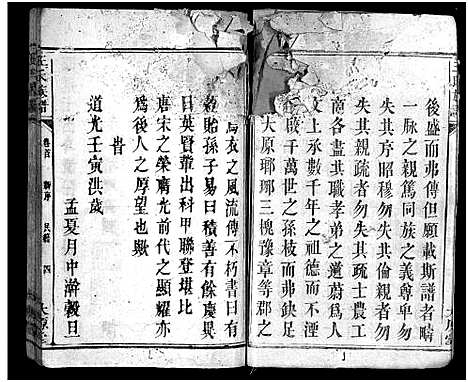 後盛而弗傳但願載斯譜者疇
一脉之親篤同族之義尊卑勿
失其序昭穆勿失其倫親者勿
失其親疏者勿失其疏士農工
商各盡其職孝弟之道蔚爲人
文上承數千年之祖德而不湮
啟千萬世之孫枝而弗缺
大原瑯琊三槐豫章等郡之
烏衣之風流傳一不朽書曰
貽孫子易曰積善有餘慶異
日英賢章出科甲聯登堪比
唐宋之榮膺光前代之顯耀亦
爲後人之厚望也歟
旹
道光壬寅洪歲
孟夏月中澣穀旦
王氏族譜
卷首
新序
四
大原堂